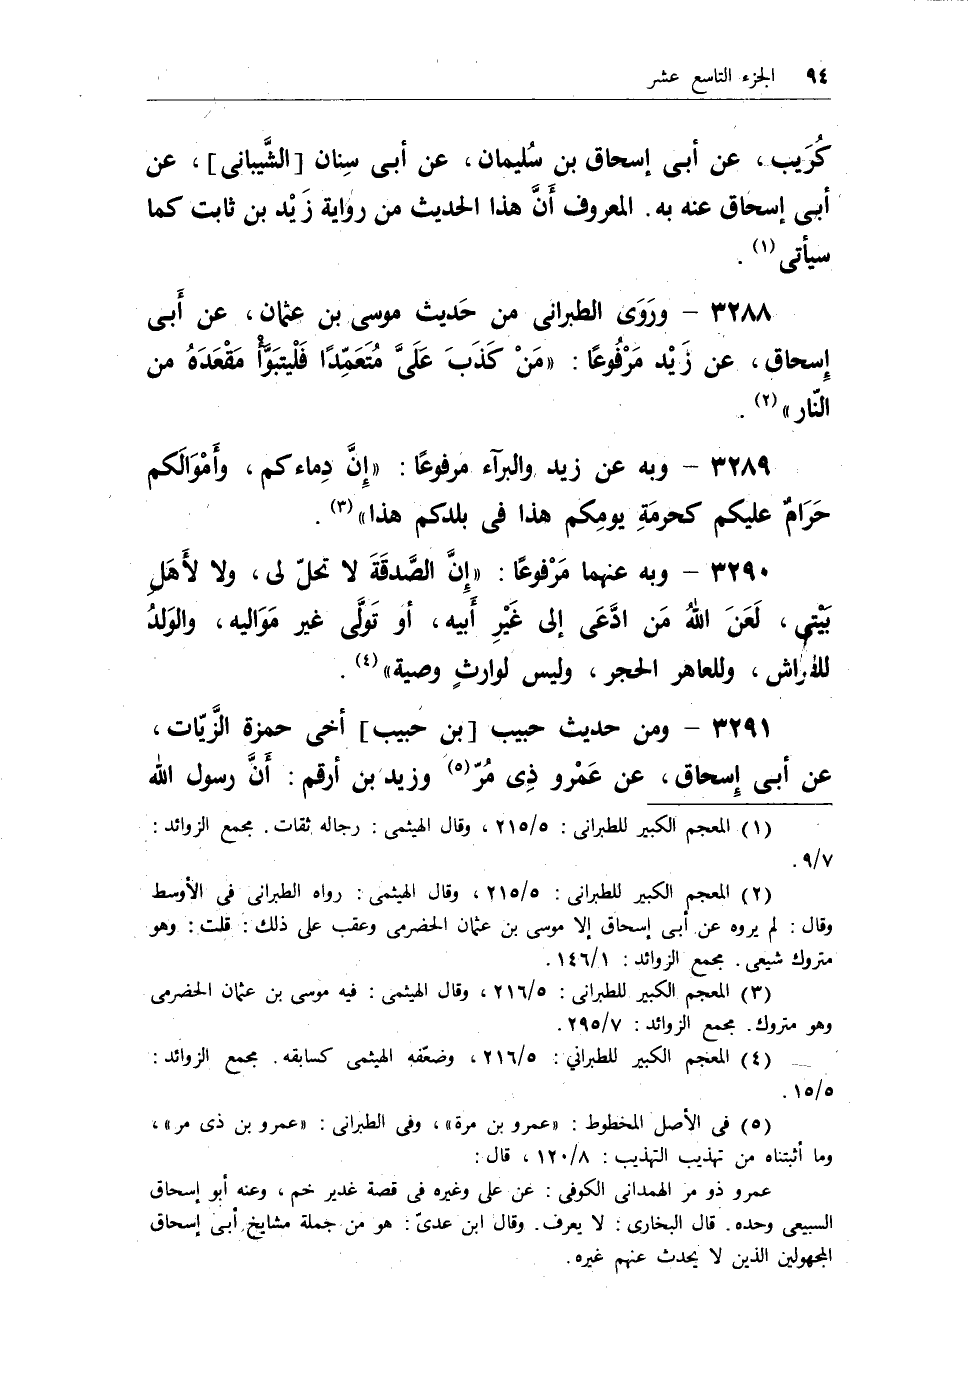 ٩٤ الجزء التاسع عشر
كُرَيب ، عن أبى إسحاق بن سُليمان ، عن أبى سِنان [ الشَّيبانى ] ، عن
أبى إسحاق عنه به . المعروف أَنَّ هذا الحديث من رواية زَيْد بن ثابت كما
سيأتى (١) .
٣٢٨٨ - ورَوَى الطبرانى من حَديث موسى بن عثمان ، عن أَبى
إِسحاق ، عن زَيْد مَرْفُوعًا : « مَنْ كَذَبَ عَلَىَّ مُتَعَمِّدًا فَلْيتبَوَّأْ مَقْعَدَهُ من
النّار » (٢) .
٣٢٨٩ - وبه عن زيد والبرآء مرفوعًا : « إِنَّ دِماءكم ، وأَمْوَالَكم
حَرَامٌ عليكم كحرمَةِ يومِكم هذا فى بلدكم هذا » (٣) .
٣٢٩٠ - وبه عنهما مَرْفوعًا : « إِنَّ الصَّدقَةَ لا تحلّ لى ، ولا لأَهَلِ
بَيْتى ، لَعَنَ اللهُ مَن ادَّعَى إلى غَيْرِ أَبيه ، أو تَولَّى غير مَوَاليه ، والوَلدُ
للفراش ، وللعاهر الحجر ، وليس لوارثٍ وصية » (٤) .
٣٢٩١ - ومن حديث حبيب [ بن حبيب ] أخى حمزة الزَّيّات ،
عن أبى إِسحاق ، عن عَمْرو ذِى مُرّ (٥) وزيد بن أرقم : أَنَّ رسول الله
(١) المعجم الكبير للطبرانى : ٢١٥/٥ ، وقال الهيثمى : رجاله ثقات . مجمع الزوائد :
٩/٧ .
(٢) المعجم الكبير للطبرانى : ٢١٥/٥ ، وقال الهيثمى : رواه الطبرانى فى الأوسط
وقال : لم يروه عن أبى إسحاق إلا موسى بن عثمان الحضرمى وعقب على ذلك : قلت : وهو
متروك شيعى . مجمع الزوائد : ١٤٦/١ .
(٣) المعجم الكبير للطبرانى : ٢١٦/٥ ، وقال الهيثمى : فيه موسى بن عثمان الحضرمى
وهو متروك . مجمع الزوائد : ٢٩٥/٧ .
(٤) المعجم الكبير للطبراني : ٢١٦/٥ ، وضعّفه الهيثمى كسابقه . مجمع الزوائد :
١٥/٥ .
(٥) فى الأصل المخطوط : « عمرو بن مرة » ، وفى الطبرانى : « عمرو بن ذى مر » ،
وما أثبتناه من تهذيب التهذيب : ١٢٠/٨ ، قال :
عمرو ذو مر الهمدانى الكوفى : عن على وغيره فى قصة غدير خم ، وعنه أبو إسحاق
السبيعى وحده . قال البخارى : لا يعرف . وقال ابن عدىّ : هو من جملة مشايخ أبى إسحاق
المجهولين الذين لا يحدث عنهم غيره .